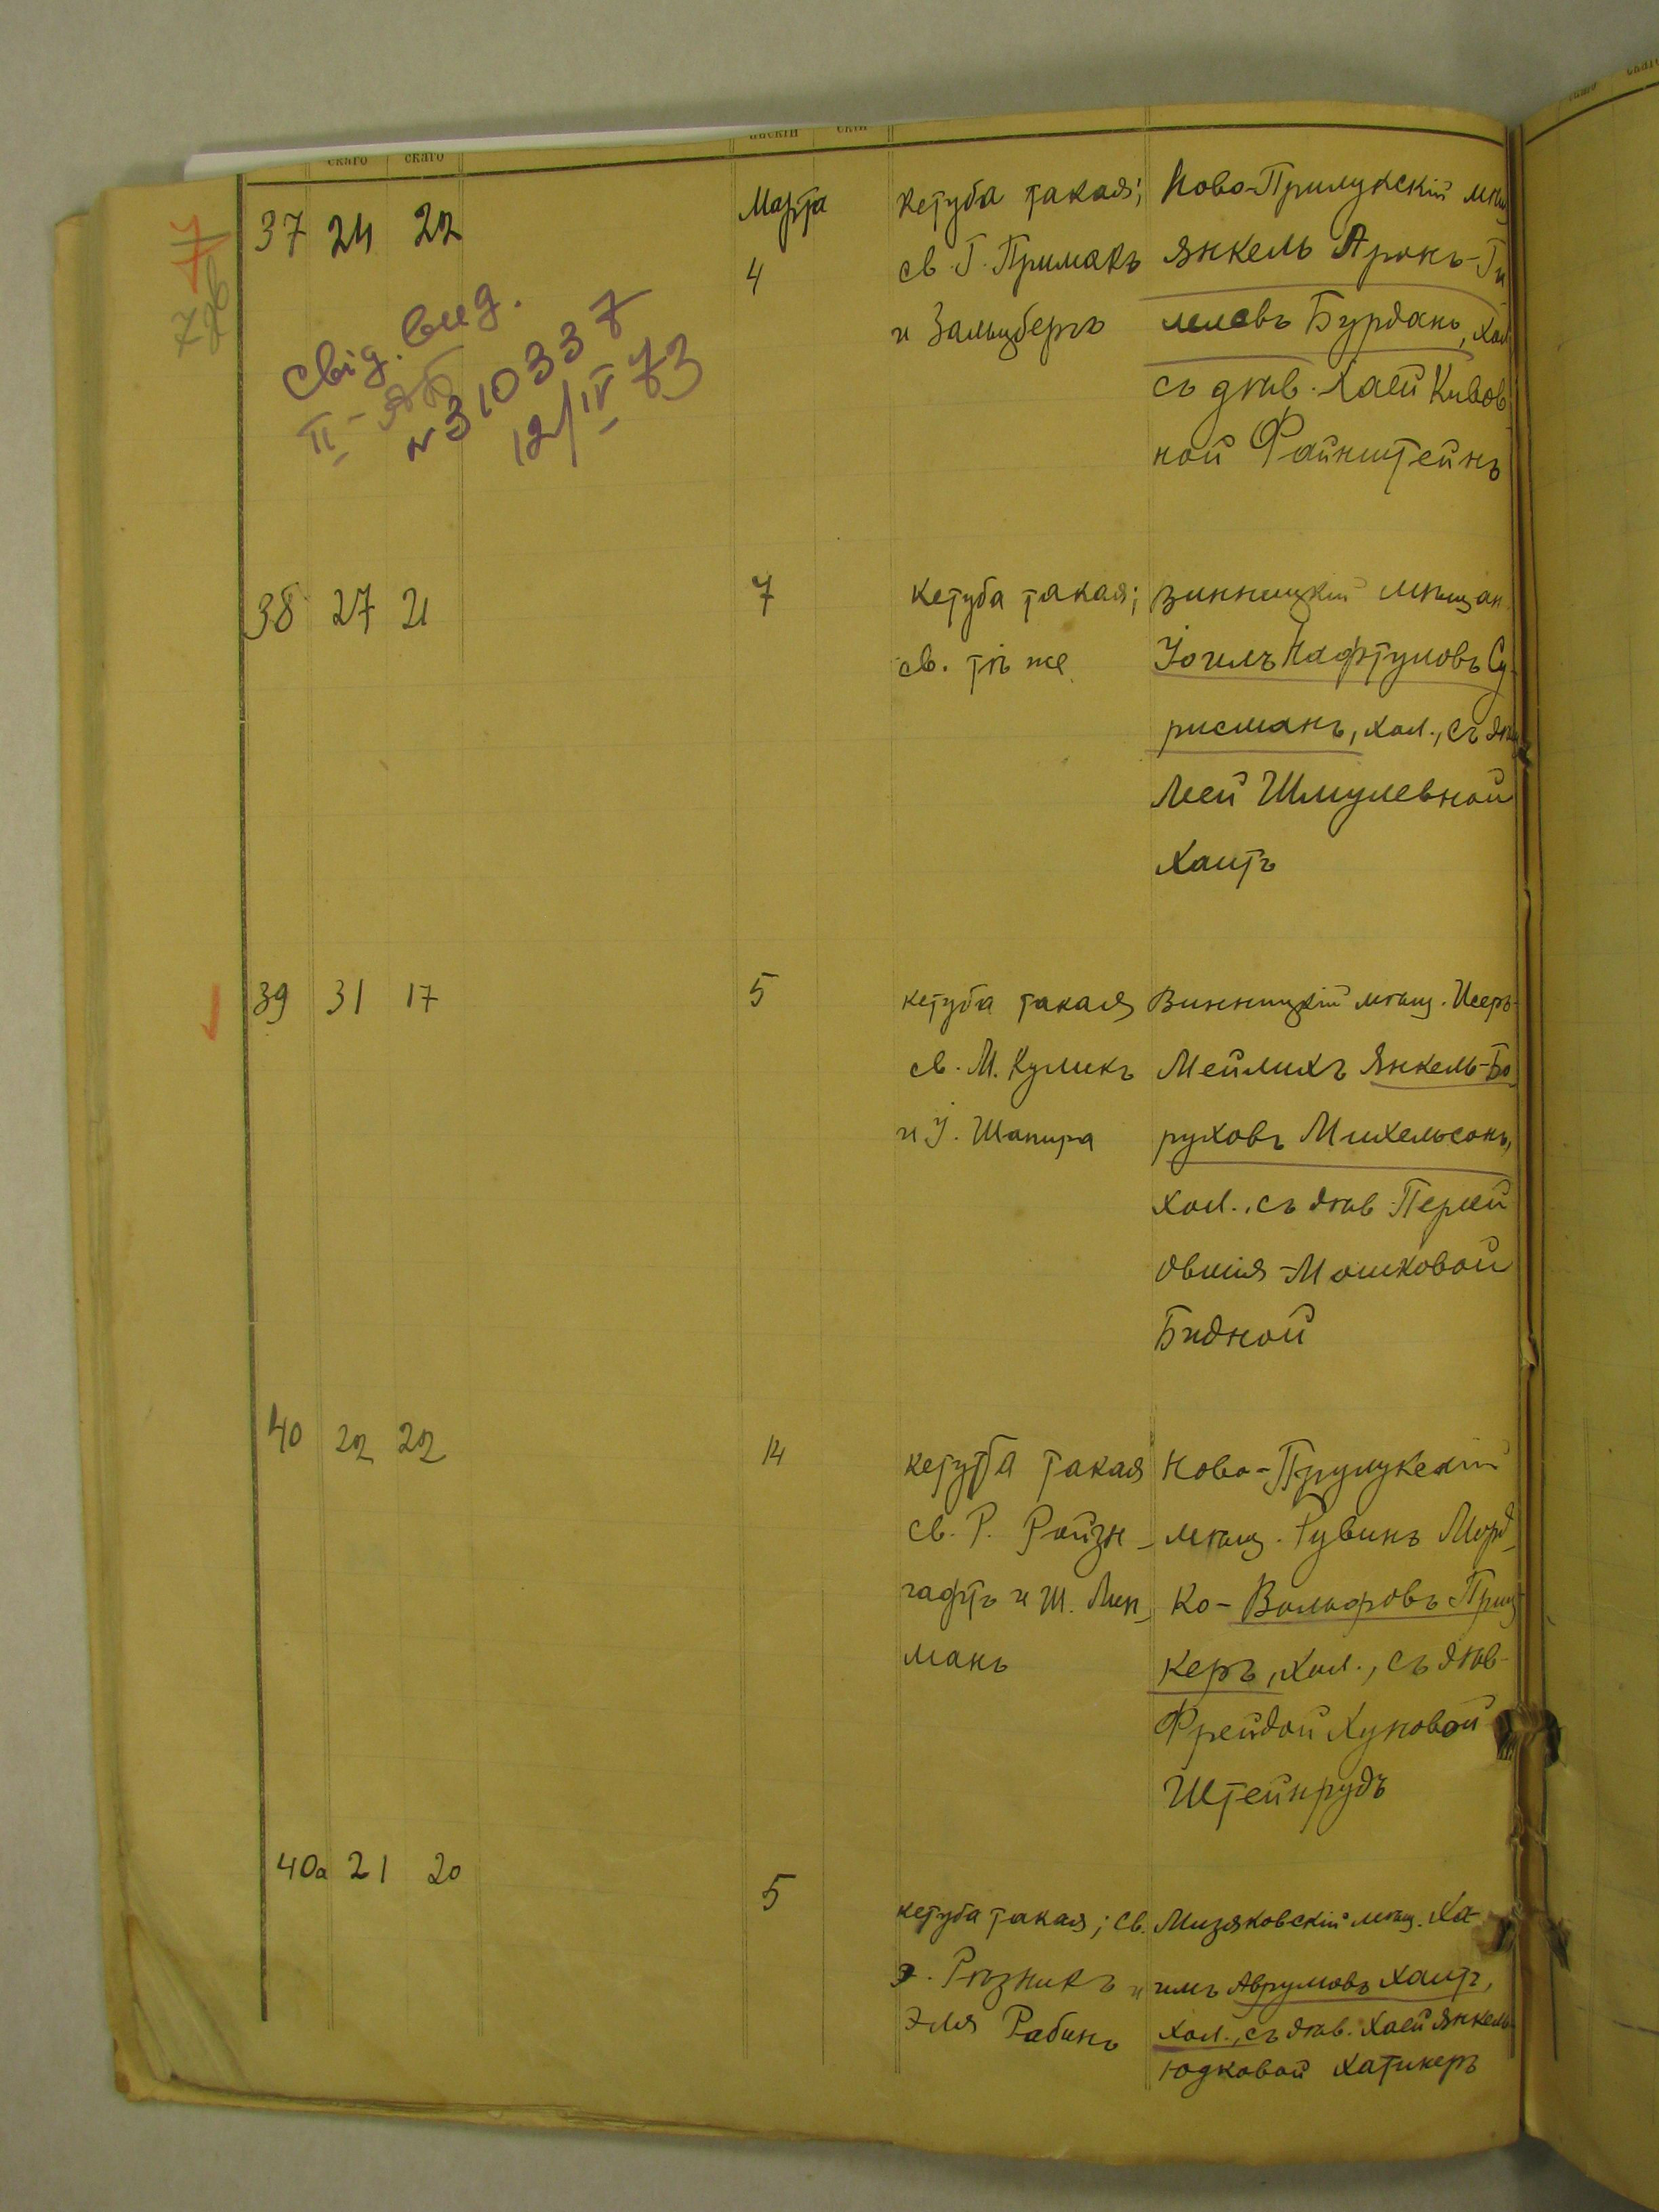 скаго скаго
37 24 22 Марта 4
Свід. вид.
II-АБ
№ 310337
12/IV 73
кетуба такая;
св. Г. Примакъ
и Зальцбергъ
Ново-Прилукскій мѣщ
Янкель Аронъ-Ги
Бурданъ, хол
съ дѣв. Хаей Кивов
ной Файнштейнъ
38 27 21 7
кетуба такая;
св. тѣ же
Винницкій мѣщан.
Іоилъ Нафтуловъ Су-
рисманъ, хол., съ дѣв
Леей Шмулевной
Хаитъ
39 31 17 5
кетуба такая
св. М. Куликъ
и І. Шапира
Винницкій мѣщ. Исеръ-
Мейлихъ Янкель-Бо
руховъ Михельсонъ,
хол., съ дѣв. Перлей
Овшія-Мошковой
Бидной
40 22 22 14
кетуба такая
св. Р. Ройзн-
гафтъ и Ш. Лип-
манъ
Ново-Прилукскій
мѣщ. Рувинъ Морд-
ко-Вольфовъ Приц
керъ, хол., съ дѣв.
Фрейдой Хуновой
Штейнрудъ
40а 21 20 5
кетуба такая; св.
Э. Рѣзникъ и
Эля Рабинъ
Мизяковскій мѣщ. Ха-
имъ Аврумовъ Хаитъ,
хол., съ дѣв. Хаей Янкель-
Юдковой Хатикеръ